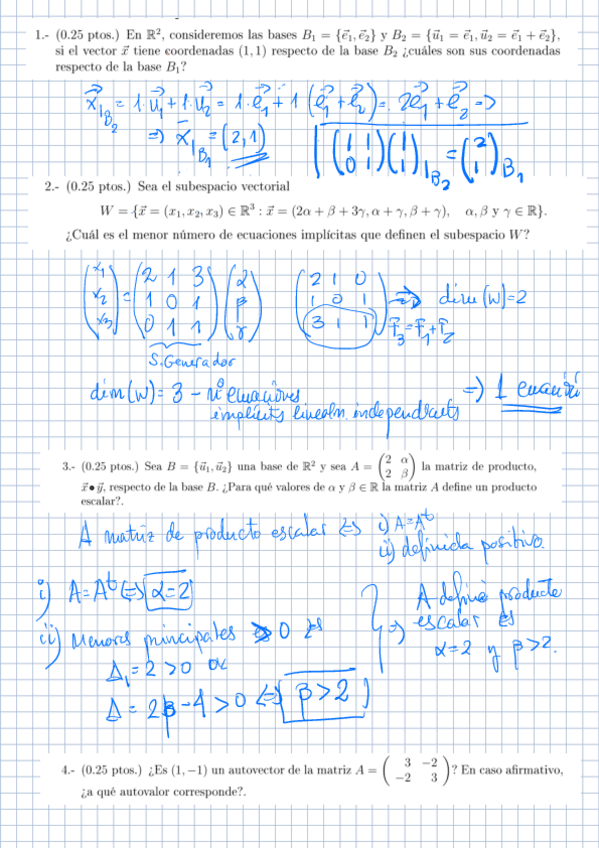 1.- (0.25 ptos.) En ℝ², consideremos las bases B₁ = {e⃗₁, e⃗₂} y B₂ = {u⃗₁ = e⃗₁, u⃗₂ = e⃗₁ + e⃗₂},
si el vector x⃗ tiene coordenadas (1, 1) respecto de la base B₂ ¿cuáles son sus coordenadas
respecto de la base B₁?
x⃗|B₂ = 1·u⃗₁ + 1·u⃗₂ = 1·e⃗₁ + 1(e⃗₁ + e⃗₂) = 2e⃗₁ + e⃗₂ =>
=> x|B₁ = (2,1) (1 1; 0 1)(1; 1)|B₂ = (2; 1)B₁
2.- (0.25 ptos.) Sea el subespacio vectorial
W = {x⃗ = (x₁, x₂, x₃) ∈ ℝ³ : x⃗ = (2α + β + 3γ, α + γ, β + γ), α, β y γ ∈ ℝ}.
¿Cuál es el menor número de ecuaciones implícitas que definen el subespacio W?
(x₁; x₂; x₃) = (2 1 3; 1 0 1; 0 1 1)(α; β; γ) (2 1 0; 1 0 1; 3 1 1) F₃=F₁+F₂ => dim(W)=2
S.Generador
dim(W)= 3 - nº ecuaciones => 1 ecuación
implícits linealm. independients
3.- (0.25 ptos.) Sea B = {u⃗₁, u⃗₂} una base de ℝ² y sea A = (2 α; 2 β) la matriz de producto,
x⃗•y⃗, respecto de la base B. ¿Para qué valores de α y β ∈ ℝ la matriz A define un producto
escalar?.
A matriz de producto escalar <=> i) A=Aᵗ
ii) definida positiva.
i) A=Aᵗ <=> α=2
ii) Menores principales > 0
Δ₁ = 2 > 0 ok
Δ = 2β-4 > 0 <=> β>2
=> A define producto
escalar <=>
α=2 y β>2.
4.- (0.25 ptos.) ¿Es (1, −1) un autovector de la matriz A = (3 −2; −2 3)? En caso afirmativo,
¿a qué autovalor corresponde?.